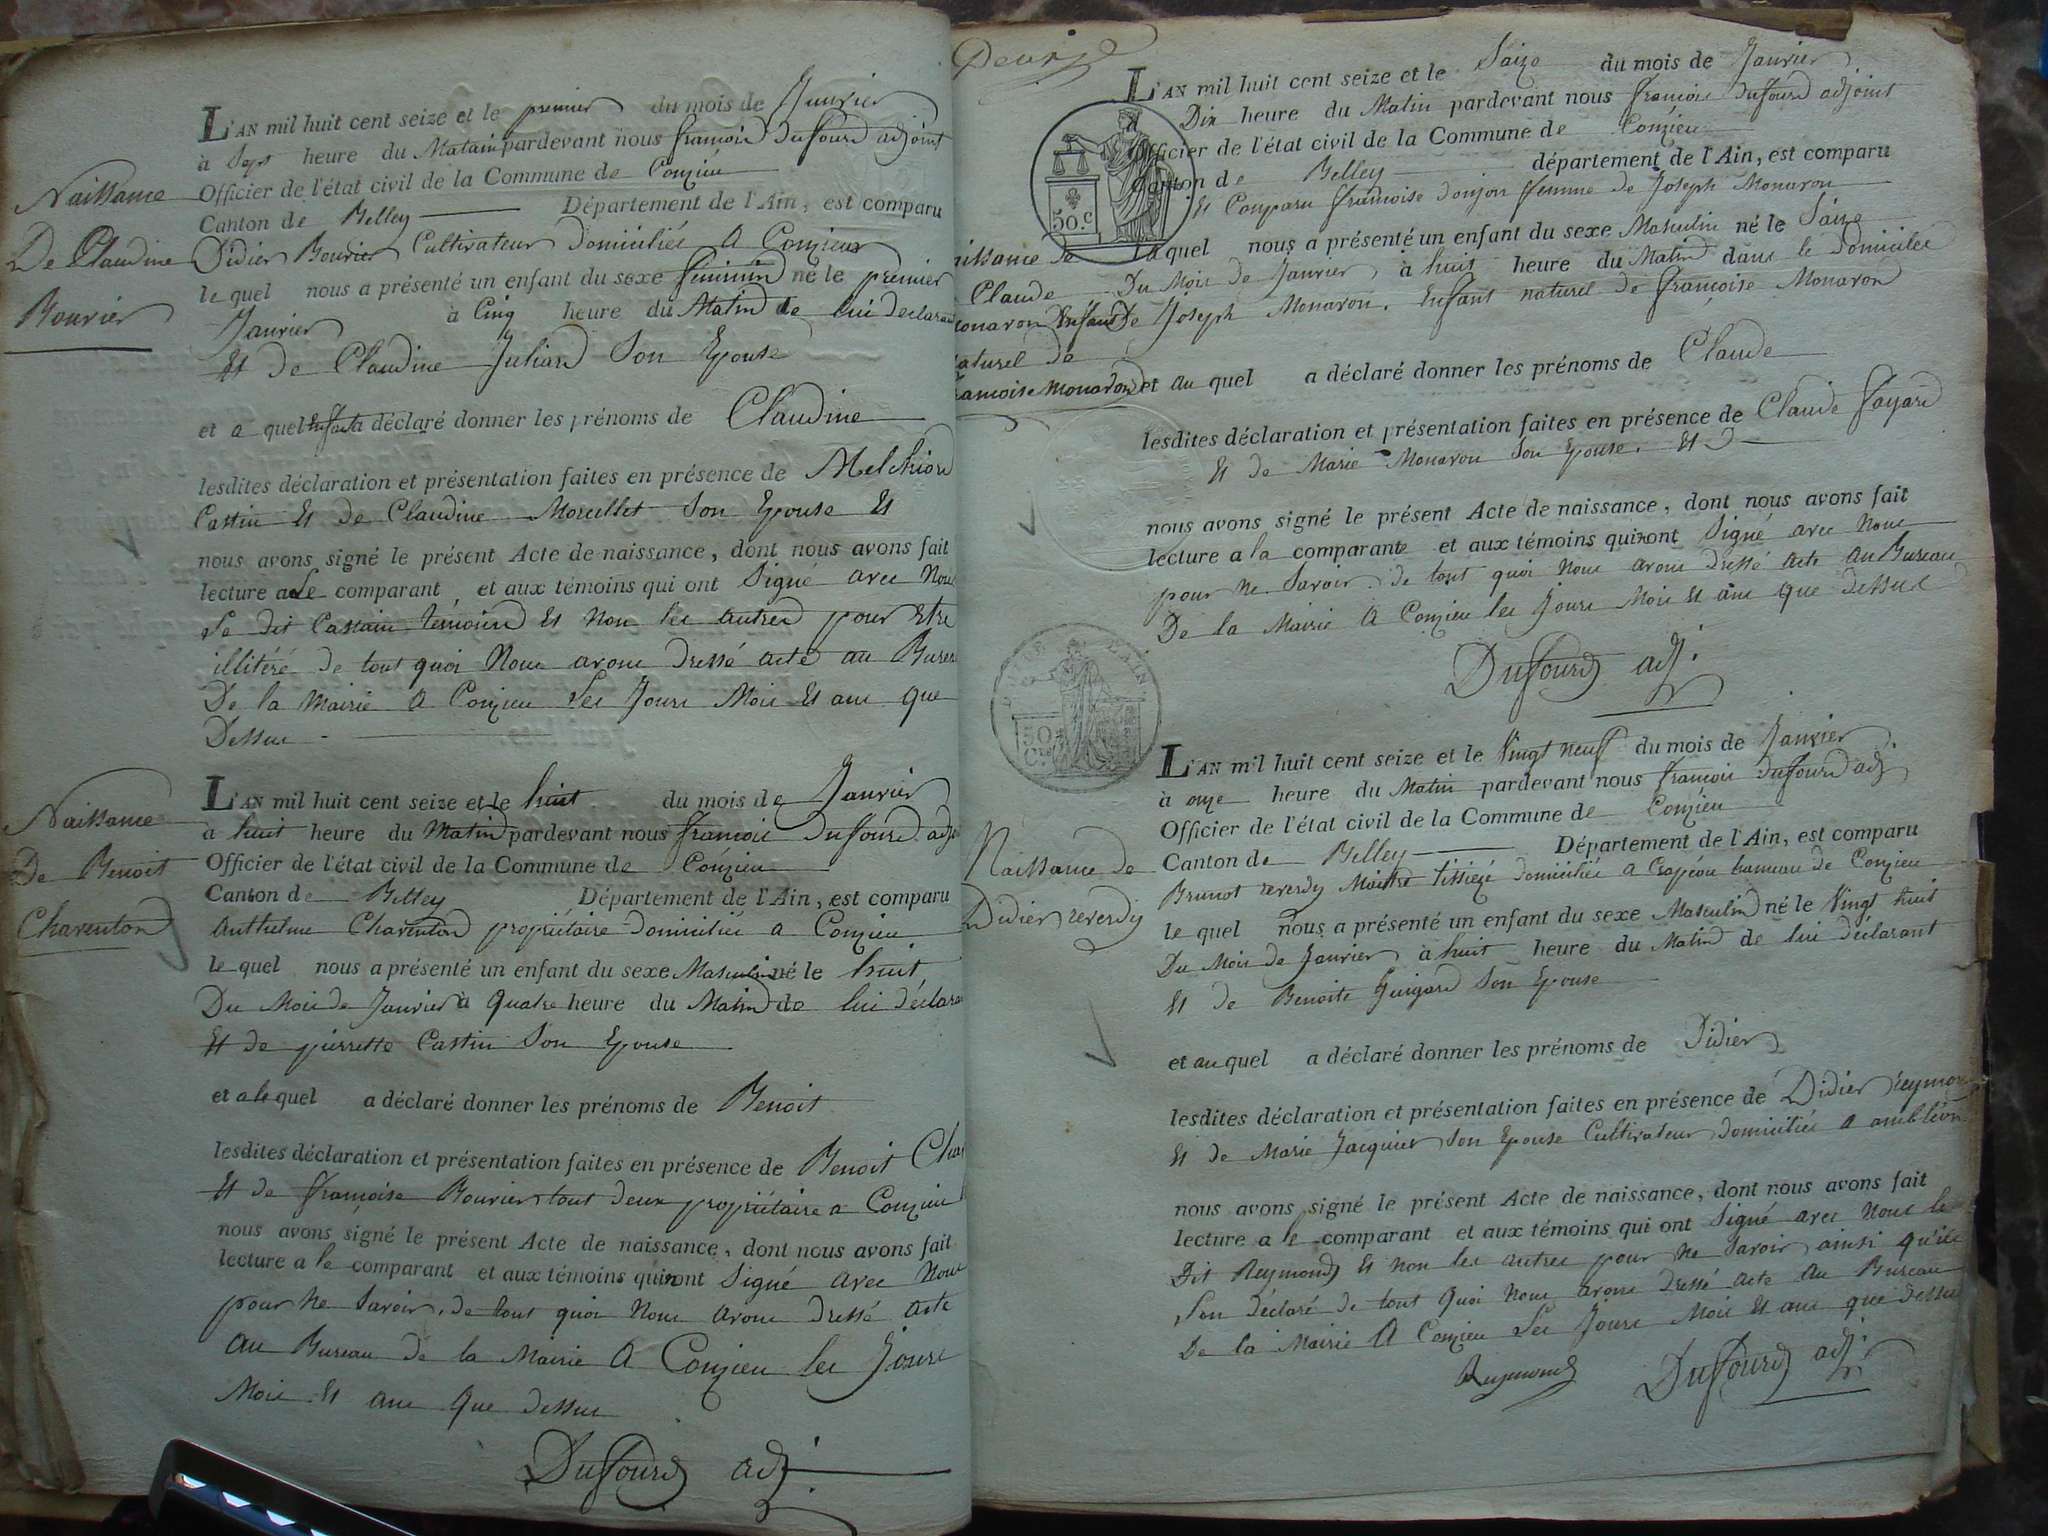 L'AN mil huit cent seize et le premier du mois de Janvier
à Sept heure du Matain pardevant nous françois Duffourd adjoint
Officier de l'état civil de la Commune de Conzieu
Canton de Belley Département de l'Ain, est comparu
Didier Bouvier Cultivateur Domiciliés A Conzieux
le quel nous a présenté un enfant du sexe féminin né le premier
Janvier à Cinq heure du Matin de lui déclarant
Et de Claudine Juliand Son Epouse
Naissance
De Claudine
Bouvier
et a quel Enfant a déclaré donner les prénoms de Claudine
lesdites déclaration et présentation faites en présence de Melchior
Castin Et de Claudine Morellet Son Epouse Et
nous avons signé le présent Acte de naissance, dont nous avons fait
lecture a Le comparant et aux témoins qui ont Signé avec Nous
Le dit Castain témoins Et Non les autres pour Etre
illitéré de tout quoi Nous avons dressé acte au Bureau
De la Mairie A Conzieu Les Jours Mois Et ans que
Dessus
L'AN mil huit cent seize et le huit du mois de Janvier
à huit heure du Matin pardevant nous françois Duffourd adj
Officier de l'état civil de la Commune de Conzieu
Canton de Belley Département de l'Ain, est comparu
Anthelme Charenton propriétaire domicilié a Conzieu
le quel nous a présenté un enfant du sexe Masculin né le huit
Du Mois de Janvier à Quatre heure du Matin de lui déclarant
Et de pierrette Castin Son Epouse
Naissance
De Benoit
Charenton
et a le quel a déclaré donner les prénoms de Benoit
lesdites déclaration et présentation faites en présence de Benoit Cha
Et de françoise Bouvier tout deux propriétaire a Conzieu
nous avons signé le présent Acte de naissance, dont nous avons fait
lecture a le comparant et aux témoins qui n'ont Signé avec Nous
pour ne Savoir, de tout quoi Nous avons dressé acte
au Bureau de la Mairie A Conzieu les Jours
Mois Et ans que dessus
Duffourd adj
Deux
L'AN mil huit cent seize et le Saize du mois de Janvier
Dix heure du Matin pardevant nous françois Duffourd adjoint
Officier de l'état civil de la Commune de Conzieu
Canton de Belley département de l'Ain, est comparu
Et Comparu françoise donjon femme de Joseph Monavon
laquel nous a présenté un enfant du sexe Masculin né le Saize
Du Mois de Janvier, à huit heure du Matin dans le domicile
De Joseph Monavon. Enfant naturel de françoise Monavon
50.C
aissance de
Claude
onavon Enfant
aturel de
rançoise Monavon
et au quel a déclaré donner les prénoms de Claude
lesdites déclaration et présentation faites en présence de Claude fayard
Et de Marie Monavon Son Epouse. Et
nous avons signé le présent Acte de naissance, dont nous avons fait
lecture a la comparante et aux témoins qui n'ont Signé avec Nous
pour ne Savoir. de tout quoi Nous avons dressé acte au Bureau
De la Mairie A Conzieu les Jours Mois Et ans que dessus
Duffourd adj.
AIN
50
L'AN mil huit cent seize et le Vingt neuf du mois de Janvier
à onze heure du Matin pardevant nous françois Duffourd adj
Officier de l'état civil de la Commune de Conzieu
Canton de Belley Département de l'Ain, est comparu
Brunot reverdy Maitre tissiégé domicilié a Crapéou hameau de Conzieu
le quel nous a présenté un enfant du sexe Masculin né le Vingt huit
Du Mois de Janvier à huit heure du Matin de lui déclarant
Et de Benoite Guigard Son Epouse
Naissance de
Didier reverdy
et au quel a déclaré donner les prénoms de Didier
lesdites déclaration et présentation faites en présence de Didier reymon
Et de Marie Jacquier Son Epouse Cultivateur domiciliés A ambléon
nous avons signé le présent Acte de naissance, dont nous avons fait
lecture a le comparant et aux témoins qui ont Signé avec Nous le
Dit Reymond Et non les autres pour ne Savoir ainsi qu'ils
L'on déclaré de tout Quoi Nous avons dressé acte Au Bureau
De la Mairie A Conzieu Les Jours Mois Et ans que dessus
Reymond Duffourd adj.